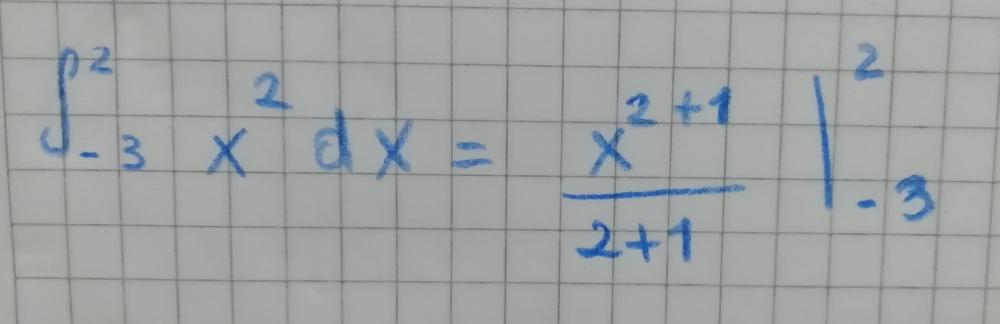 ∫₋₃² x² dx = x²⁺¹/2+1 |₋₃²